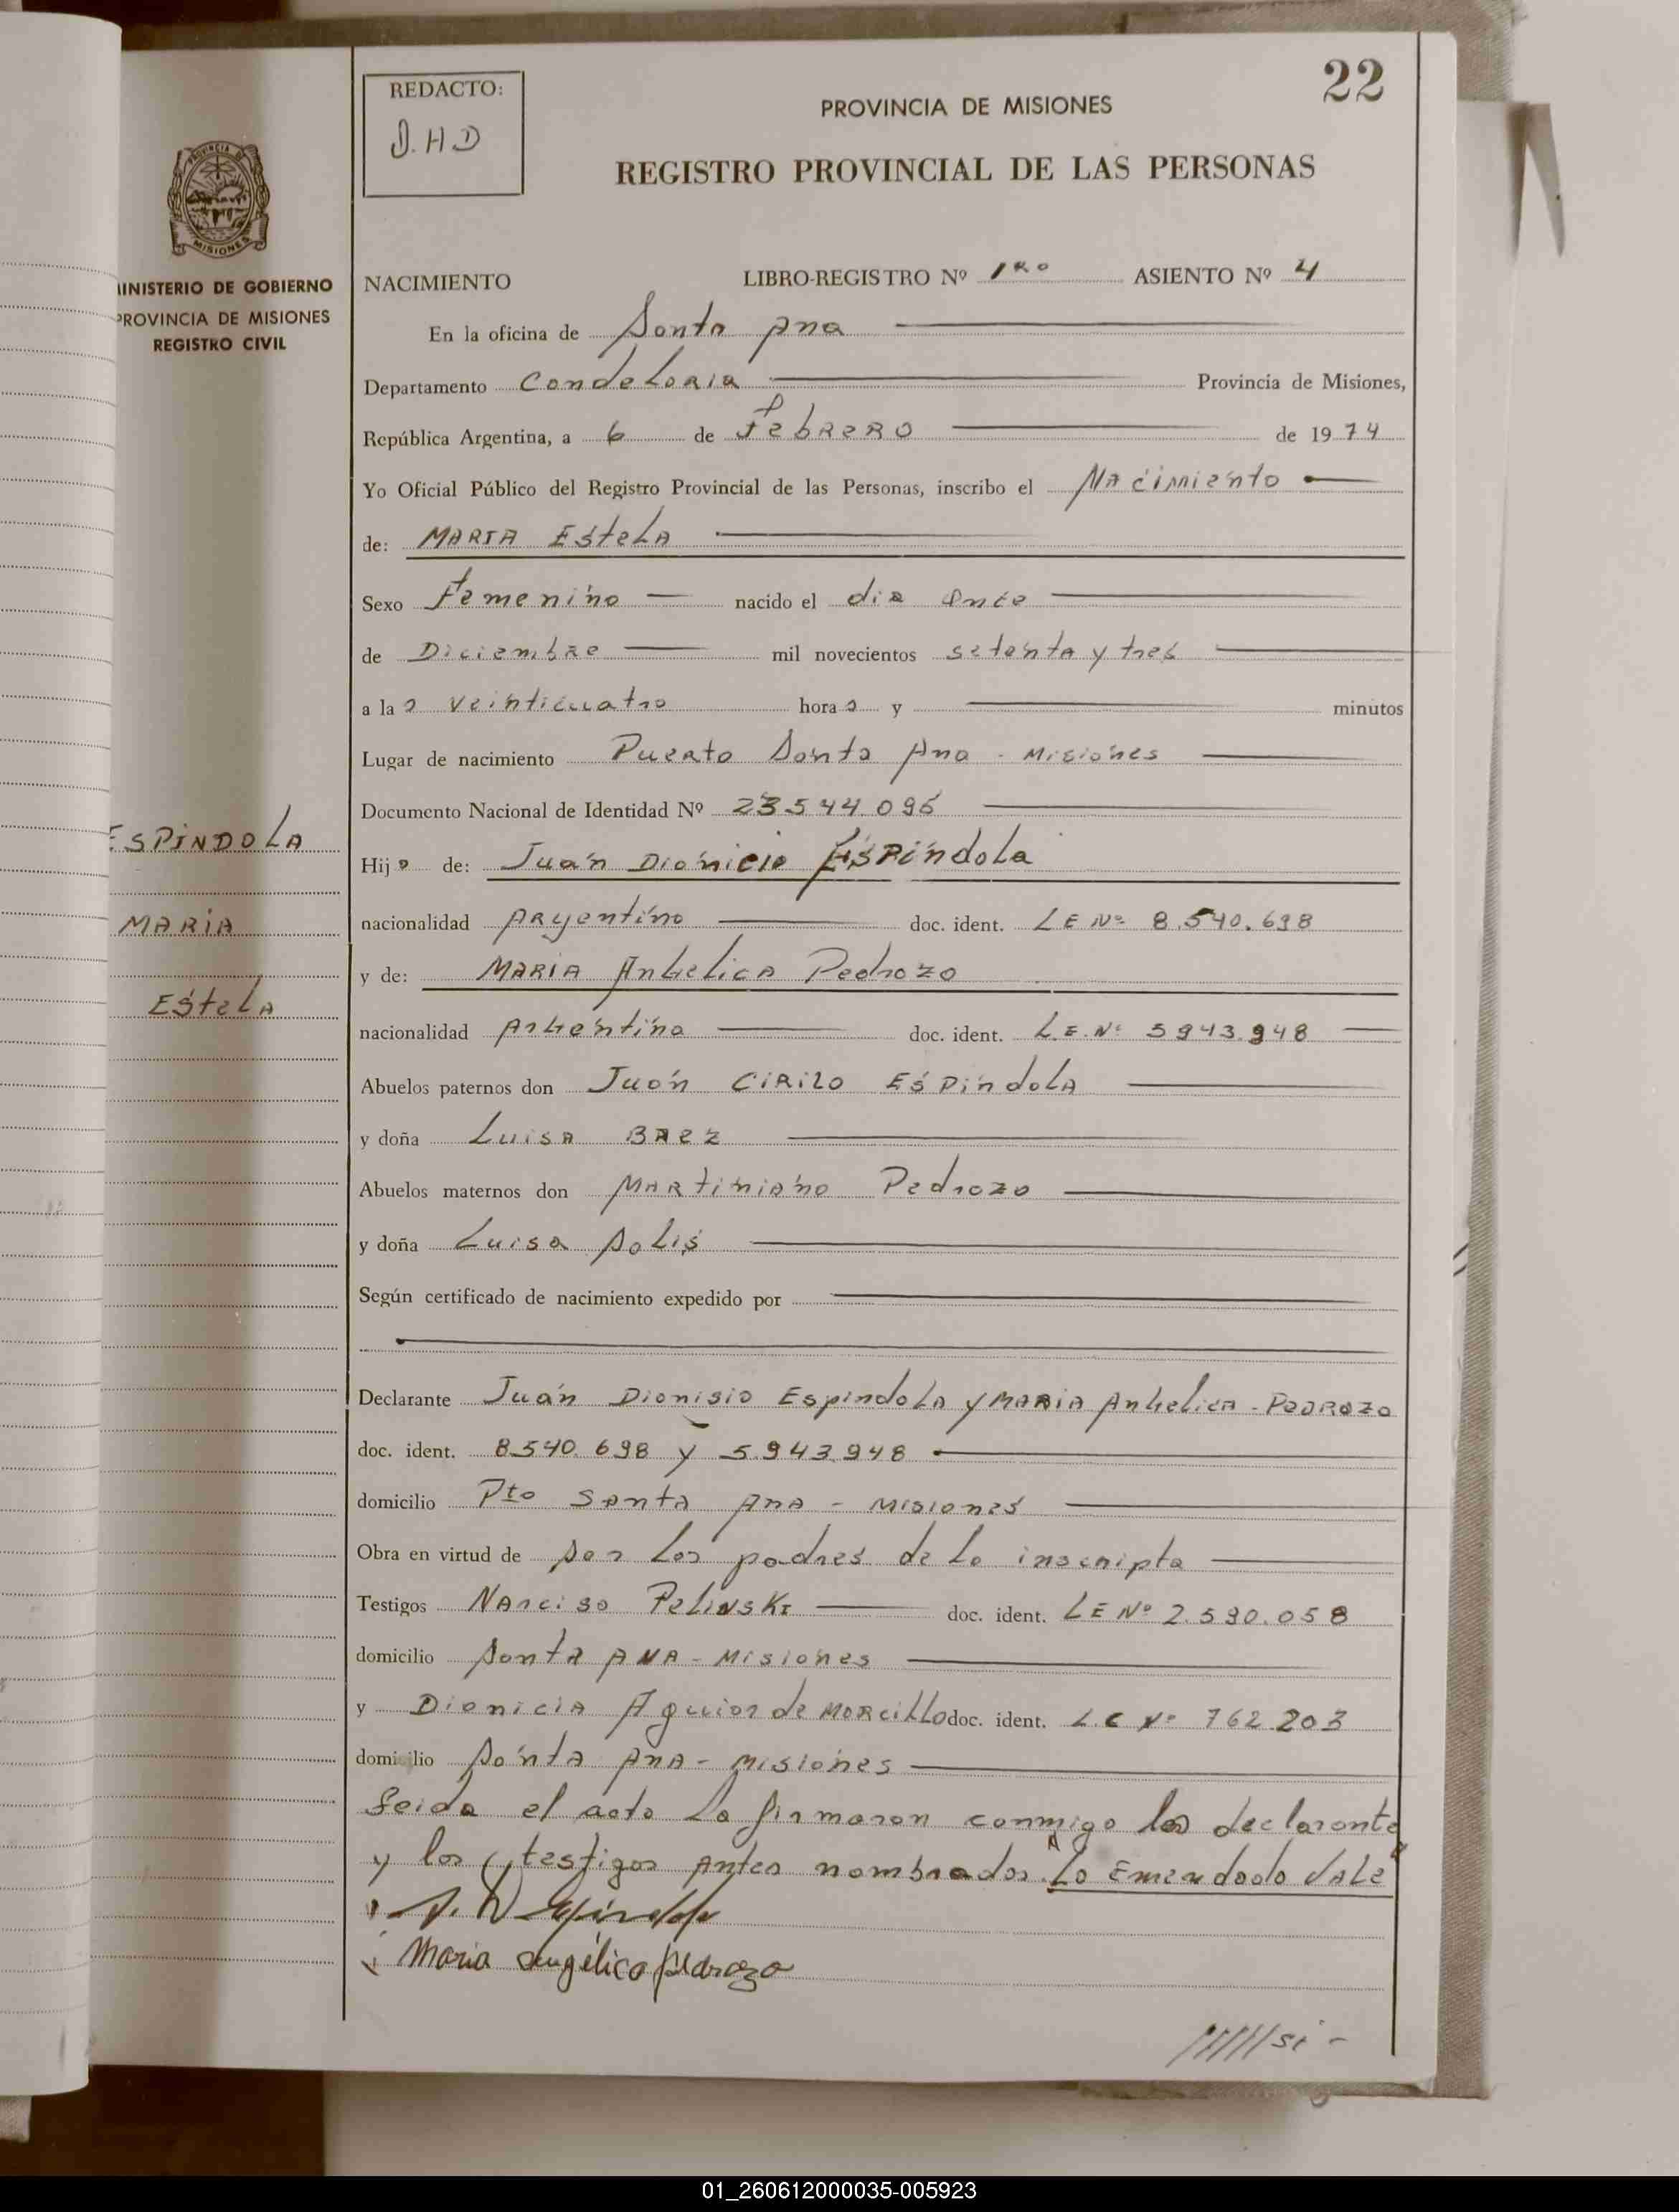 22
REDACTO:
J.H.D
PROVINCIA DE MISIONES
REGISTRO PROVINCIAL DE LAS PERSONAS
PROVINCIA DE
MISIONES
MINISTERIO DE GOBIERNO
PROVINCIA DE MISIONES
REGISTRO CIVIL
ESPINDOLA
MARIA
EStELA
NACIMIENTO LIBRO-REGISTRO Nº 1RO ASIENTO Nº 4
En la oficina de Santa Ana
Departamento CandeLaria Provincia de Misiones,
República Argentina, a 6 de FebReRO de 1974
Yo Oficial Público del Registro Provincial de las Personas, inscribo el Nacimiento
de: MARIA EsteLA
Sexo Femenino nacido el dia Once
de Diciembre mil novecientos setenta y tres
a la s veinticuatro hora s y minutos
Lugar de nacimiento Puerto Santa Ana - Misiones
Documento Nacional de Identidad Nº 23544.096
Hij a de: Juan Dionicio EsPindola
nacionalidad Argentino doc. ident. LE Nº 8.540.698
y de: MARIA AngeLica Pedrozo
nacionalidad Argentina doc. ident. L.E.Nº 5943.948
Abuelos paternos don Juan CIRILO EsPindoLA
y doña Luisa BAez
Abuelos maternos don MARtiniano Pedrozo
y doña Luisa SoLis
Según certificado de nacimiento expedido por
Declarante Juan Dionisio EspindoLA y MARIA AngeLica - PedRozo
doc. ident. 8.540.698 y 5.943.948
domicilio Pto Santa Ana - Misiones
Obra en virtud de ser Los padres de La inscripta
Testigos Narciso PeLinski doc. ident. LE Nº 2.590.058
domicilio Santa ANA - Misiones
y Dionicia Aguiar de MORCiLLo doc. ident. L.C Nº 762.203
domicilio Santa AnA - Misiones
Leida el acta La firmaron conmigo los declarantes
y los testigos Antes nombrados. Lo Emendado VALE
J. D Espindola
Maria Angélica Pedrozo
/////si -
01_260612000035-005923